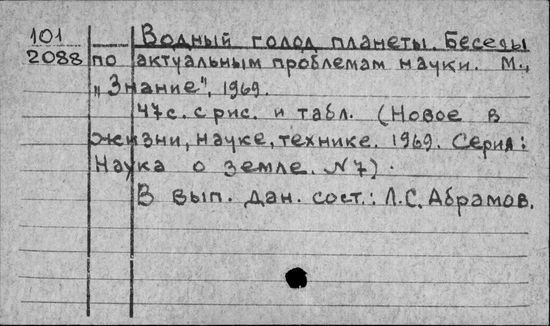 101
2088
Водный голод планеты. Беседы
по актуальным проблемам науки. М.,
„Знание", 1969.
47 с. с рис. и табл. (Новое в
жизни, науке, технике. 1969. Серия:
Наука о земле. N 7).
В вып. дан. сост.: Л.С. Абрамов.